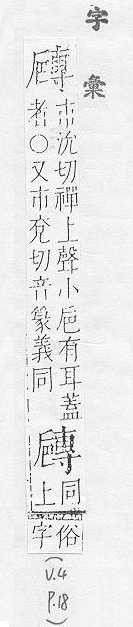 字彙
市沇切禪上聲小巵有耳蓋
者○又市兖切音篆義同
同
上
俗
字
(V.4
P.18)